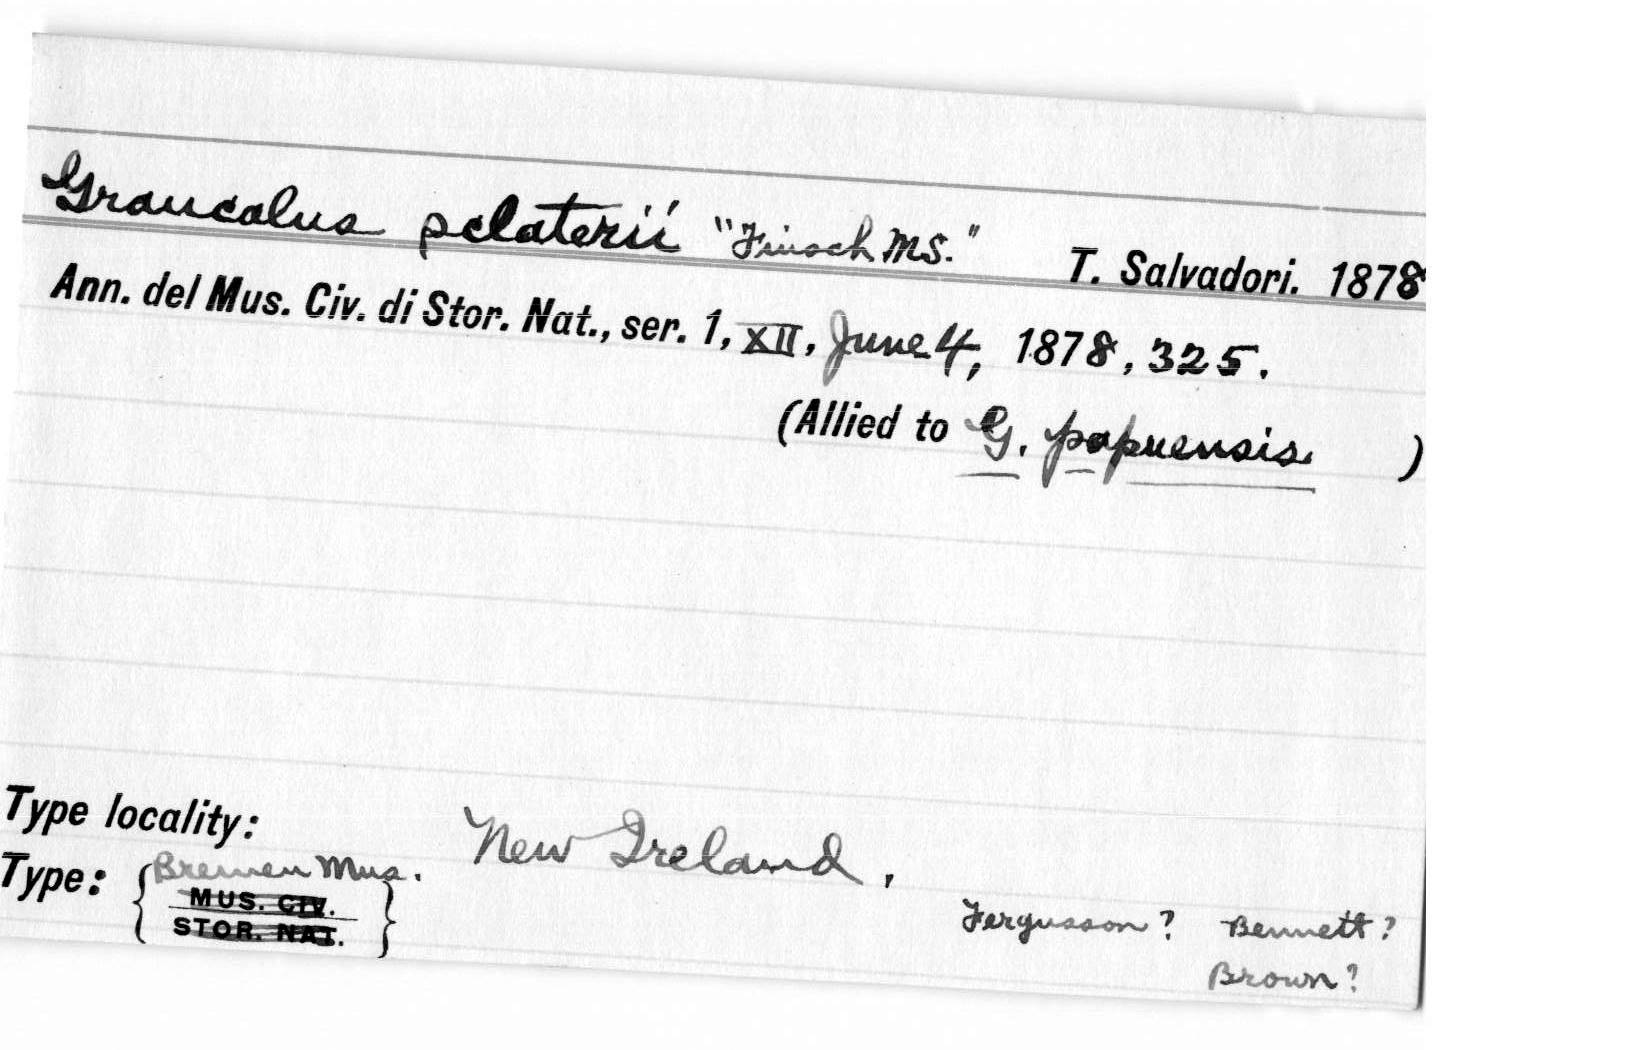 Graucalus sclaterii "Finsch MS." T. Salvadori. 1878
Ann. del Mus. Civ. di Stor. Nat., ser. 1, XII, June 4, 1878, 325.
(Allied to G. papuensis )
Type locality: New Ireland,
Type: { Bremen Mus.
MUS. CIV.
STOR. NAT. }
Fergusson? Bennett?
Brown?